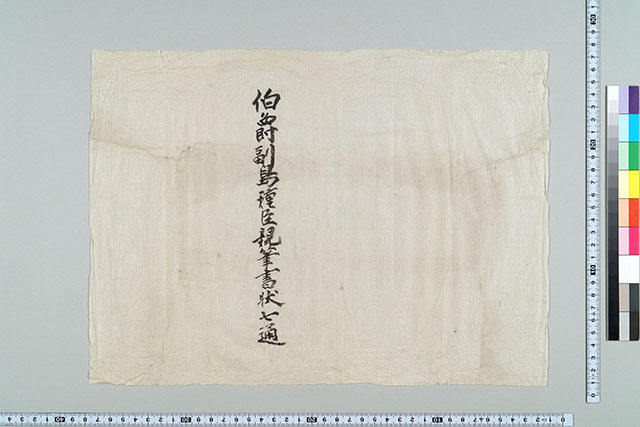 伯爵副島種臣親筆書状七通